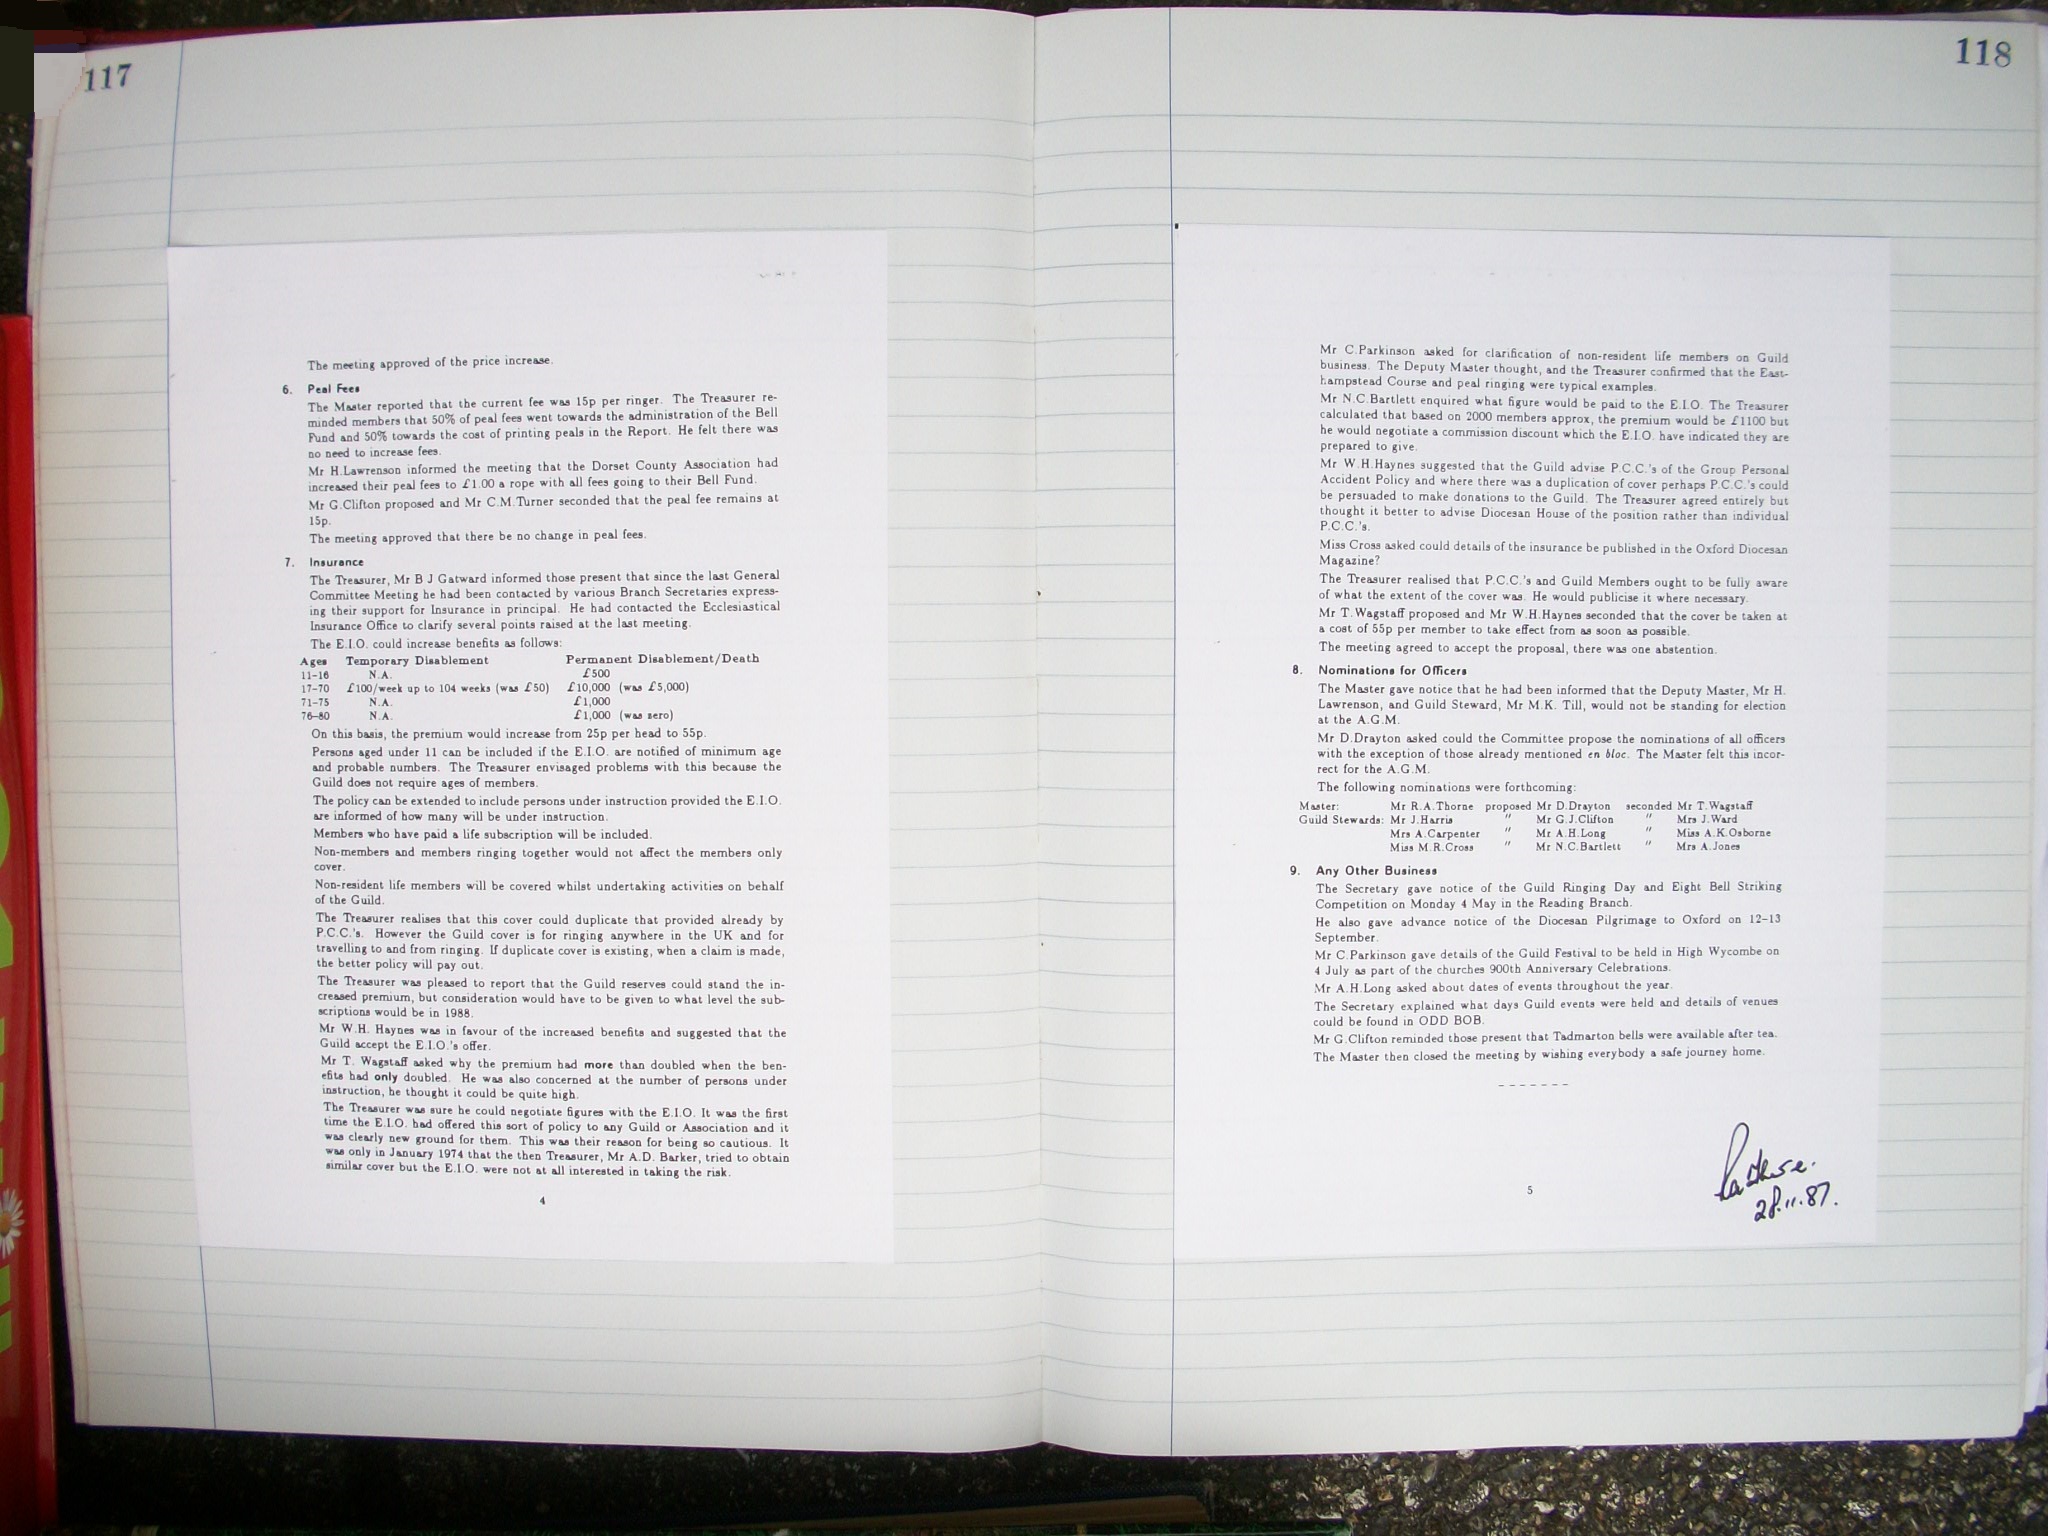 117
The meeting approved of the price increase.
6. Peal Fees
The Master reported that the current fee was 15p per ringer. The Treasurer re-
minded members that 50% of peal fees went towards the administration of the Bell
Fund and 50% towards the cost of printing peals in the Report. He felt there was
no need to increase fees.
Mr H.Lawrenson informed the meeting that the Dorset County Association had
increased their peal fees to £1.00 a rope with all fees going to their Bell Fund.
Mr G.Clifton proposed and Mr C.M.Turner seconded that the peal fee remains at
15p.
The meeting approved that there be no change in peal fees.
7. Insurance
The Treasurer, Mr B J Gatward informed those present that since the last General
Committee Meeting he had been contacted by various Branch Secretaries express-
ing their support for Insurance in principal. He had contacted the Ecclesiastical
Insurance Office to clarify several points raised at the last meeting.
The E.I.O. could increase benefits as follows:
Ages Temporary Disablement Permanent Disablement/Death
11-16 N.A. £500
17-70 £100/week up to 104 weeks (was £50) £10,000 (was £5,000)
71-75 N.A. £1,000
76-80 N.A. £1,000 (was zero)
On this basis, the premium would increase from 25p per head to 55p.
Persons aged under 11 can be included if the E.I.O. are notified of minimum age
and probable numbers. The Treasurer envisaged problems with this because the
Guild does not require ages of members.
The policy can be extended to include persons under instruction provided the E.I.O.
are informed of how many will be under instruction.
Members who have paid a life subscription will be included.
Non-members and members ringing together would not affect the members only
cover.
Non-resident life members will be covered whilst undertaking activities on behalf
of the Guild.
The Treasurer realises that this cover could duplicate that provided already by
P.C.C.'s. However the Guild cover is for ringing anywhere in the UK and for
travelling to and from ringing. If duplicate cover is existing, when a claim is made,
the better policy will pay out.
The Treasurer was pleased to report that the Guild reserves could stand the in-
creased premium, but consideration would have to be given to what level the sub-
scriptions would be in 1988.
Mr W.H. Haynes was in favour of the increased benefits and suggested that the
Guild accept the E.I.O.'s offer.
Mr T. Wagstaff asked why the premium had more than doubled when the ben-
efits had only doubled. He was also concerned at the number of persons under
instruction, he thought it could be quite high.
The Treasurer was sure he could negotiate figures with the E.I.O. It was the first
time the E.I.O. had offered this sort of policy to any Guild or Association and it
was clearly new ground for them. This was their reason for being so cautious. It
was only in January 1974 that the then Treasurer, Mr A.D. Barker, tried to obtain
similar cover but the E.I.O. were not at all interested in taking the risk.
4
118
Mr C.Parkinson asked for clarification of non-resident life members on Guild
business. The Deputy Master thought, and the Treasurer confirmed that the East-
hampstead Course and peal ringing were typical examples.
Mr N.C.Bartlett enquired what figure would be paid to the E.I.O. The Treasurer
calculated that based on 2000 members approx, the premium would be £1100 but
he would negotiate a commission discount which the E.I.O. have indicated they are
prepared to give.
Mr W.H.Haynes suggested that the Guild advise P.C.C.'s of the Group Personal
Accident Policy and where there was a duplication of cover perhaps P.C.C.'s could
be persuaded to make donations to the Guild. The Treasurer agreed entirely but
thought it better to advise Diocesan House of the position rather than individual
P.C.C.'s.
Miss Cross asked could details of the insurance be published in the Oxford Diocesan
Magazine?
The Treasurer realised that P.C.C.'s and Guild Members ought to be fully aware
of what the extent of the cover was. He would publicise it where necessary.
Mr T.Wagstaff proposed and Mr W.H.Haynes seconded that the cover be taken at
a cost of 55p per member to take effect from as soon as possible.
The meeting agreed to accept the proposal, there was one abstention.
8. Nominations for Officers
The Master gave notice that he had been informed that the Deputy Master, Mr H.
Lawrenson, and Guild Steward, Mr M.K. Till, would not be standing for election
at the A.G.M.
Mr D.Drayton asked could the Committee propose the nominations of all officers
with the exception of those already mentioned en bloc. The Master felt this incor-
rect for the A.G.M.
The following nominations were forthcoming:
Master: Mr R.A.Thorne proposed Mr D.Drayton seconded Mr T.Wagstaff
Guild Stewards: Mr J.Harris " Mr G.J.Clifton " Mrs J.Ward
Mrs A.Carpenter " Mr A.H.Long " Miss A.K.Osborne
Miss M.R.Cross " Mr N.C.Bartlett " Mrs A.Jones
9. Any Other Business
The Secretary gave notice of the Guild Ringing Day and Eight Bell Striking
Competition on Monday 4 May in the Reading Branch.
He also gave advance notice of the Diocesan Pilgrimage to Oxford on 12-13
September.
Mr C.Parkinson gave details of the Guild Festival to be held in High Wycombe on
4 July as part of the churches 900th Anniversary Celebrations.
Mr A.H.Long asked about dates of events throughout the year.
The Secretary explained what days Guild events were held and details of venues
could be found in ODD BOB.
Mr G.Clifton reminded those present that Tadmarton bells were available after tea.
The Master then closed the meeting by wishing everybody a safe journey home.
- - - - - - -
28.11.87.
5